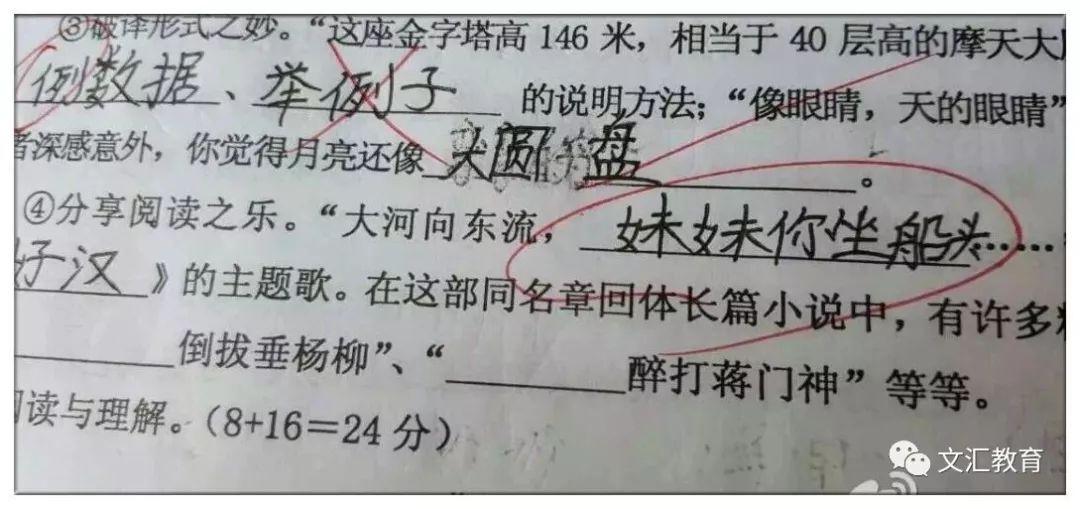 ③破译形式之妙。“这座金字塔高 146 米，相当于 40 层高的摩天大
例数据、举例子 的说明方法；“像眼睛，天的眼睛”
者深感意外，你觉得月亮还像 大圆 盘 。
④分享阅读之乐。“大河向东流， 妹妹你坐船头……
好汉 》的主题歌。在这部同名章回体长篇小说中，有许多
倒拔垂杨柳”、“ 醉打蒋门神”等等。
阅读与理解。（8+16＝24 分）
文汇教育